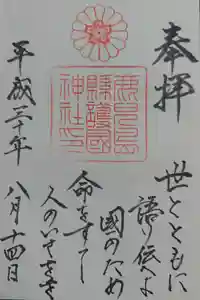 奉拝
鹿兒島
縣護國
神社印
世とともに
語り伝へよ
国のため
命をすてし
人のいさをを
平成三十年
八月十四日